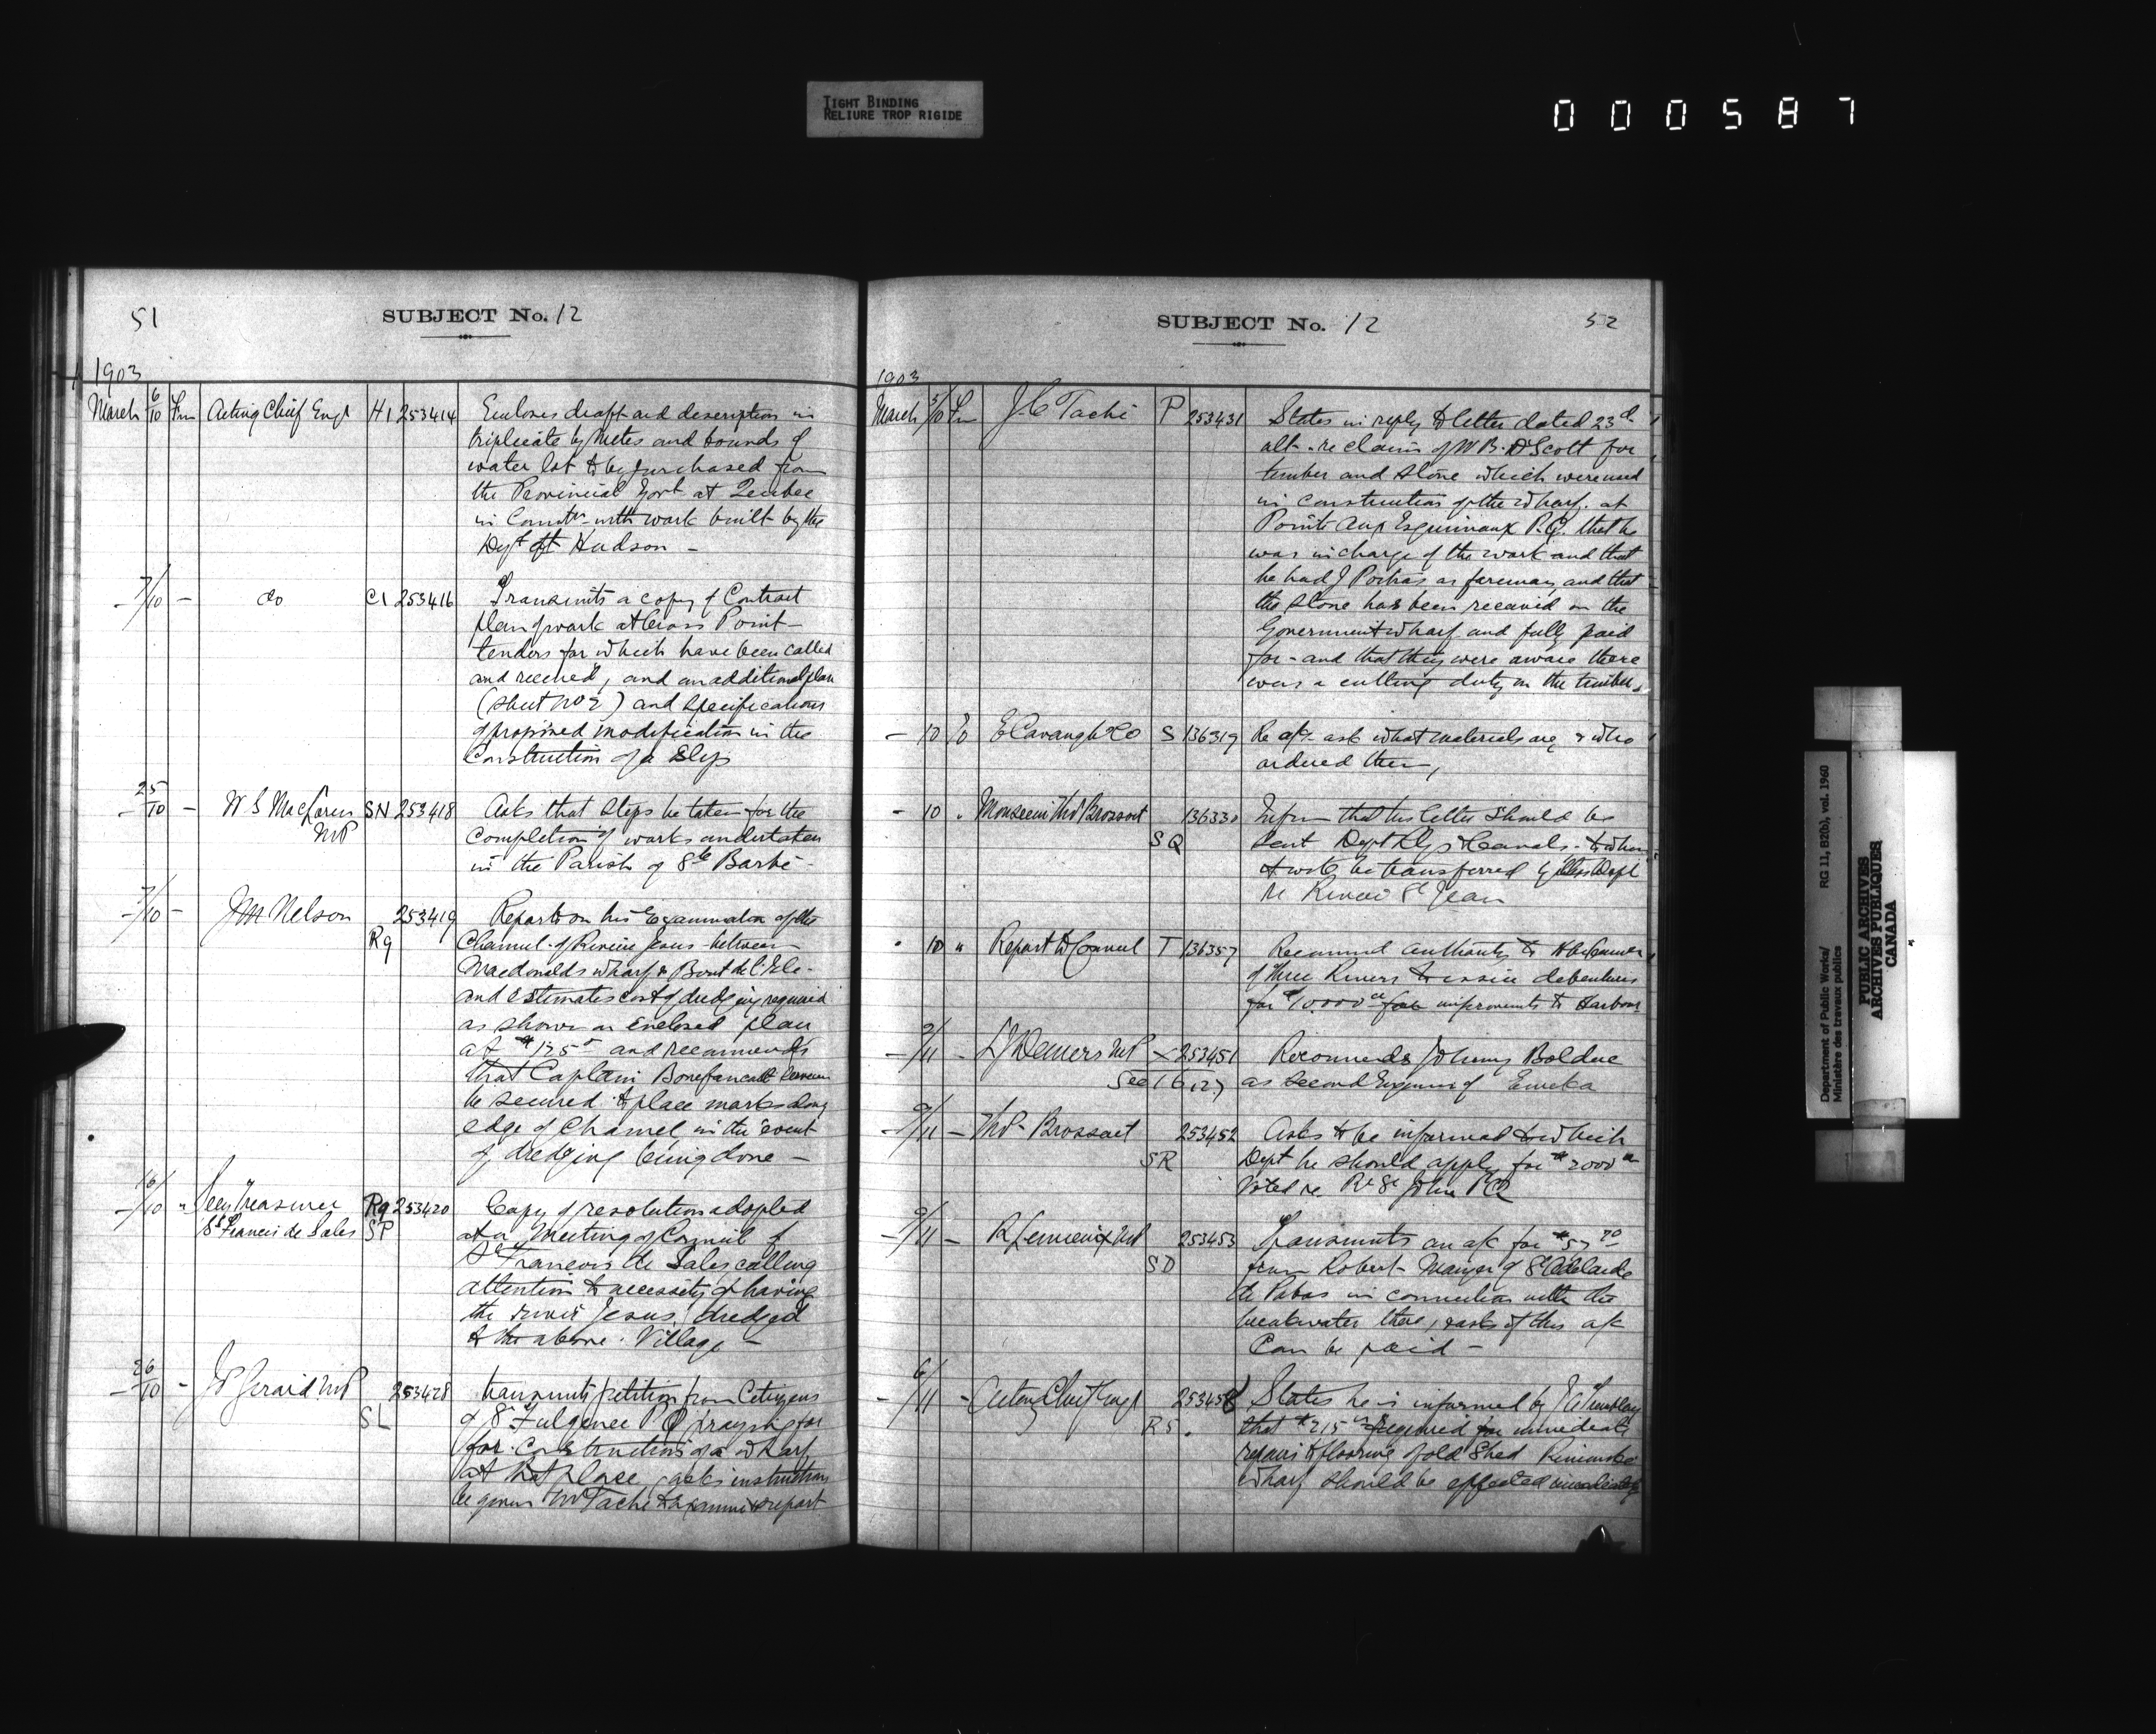 TIGHT BINDING
RELIURE TROP RIGIDE
000587
51
SUBJECT No. 12
1903
March 6/10 Fm Acting Chief Engr H1 253414 Encloses draft and description in
triplicate by metes and bounds of
water lot to be purchased from
the Provincial Govt at Quebec
in with work built by the
Dept at Hudson -
7/10 - do C1 253416 Transmits a copy of Contract
plan of work at Cross Point -
tenders for which have been called
and received, and an additional plan
(sheet No 2) and specifications
of proposed modification in the
Construction of a Slip
25/10 - W S MacLaren MP SN 253418 Asks that steps be taken for the
completion of works undertaken
in the Parish of Ste Barbe -
7/10 - J M Nelson Rq 253419 Reports on his Examination of the
Channel of Riviere Jesus between
Macdonalds wharf & Bout de l'Isle -
and estimates cost of dredging required
as shown on enclosed plan
at and recommends
that Captain
be secured to place marks along
edge of Channel in the event
of dredging being done -
16/10 " Secy Treasurer
St Francis de Sales Rq SP 253420 Copy of resolution adopted
at a Meeting of Council of
St Francois de Sales calling
attention to necessity of having
the river Jesus dredged
to the above Village -
26/10 - J Girard MP SL 253428 transmits petition from Citizens
of St Fulgence P Q praying for
for construction of a wharf
at that place, asks instructions
be given Mr Taché to examine & report
SUBJECT No. 12
52
1903
March 5/10 Fm J. C Taché P 253431 States in reply to letter dated 23d
ult - re claim of W B. Scott for
timber and stone which were used
in construction of the wharf at
Pointe aux Esquimaux P.Q. that he
was in charge of the work and that
he had J Poitras as foreman and that
the stone has been received on the
Government wharf and fully paid
for - and that they were aware there
was a cutting duty on the timber.
- 10 To E Cavanagh & Co S 136319 Re a/c ask what materials are & who
ordered them,
- 10 " Monseem Thd Brossoit SQ 136330 Inform that his letter should be
sent Dept Rlys & Canals - to whom
be transferred by this Dept
re Riviere St Jean
" 10 " Report to Council T 136357 Recommend authority to
of Three Rivers to issue debentures
for $10.000 improvements to Harbour
9/11 - L J Demers MP 253451 Recommends Johnny Bolduc
See 16127 as second Engineer of Eureka
9/11 - Thd Brossoit SR 253452 Asks to be informed to which
Dept he should apply for $2000
voted re. Re St John P.Q
9/11 - R Lemieux MP SD 253453 Transmits an a/c for
from Robert Mauger of St Adelaide
de Pabos in connection with the
breakwater there, asks if this a/c
Can be paid -
6/11 - Acting Chief Engr RS 253458 States he is informed by J A Tremblay
that $215 required for immediate
repairs to flooring of old Shed Rimouski
wharf should be effected immediately
Department of Public Works/
Ministère des travaux publics
RG 11, B2(b), vol. 1960
PUBLIC ARCHIVES
ARCHIVES PUBLIQUES
CANADA